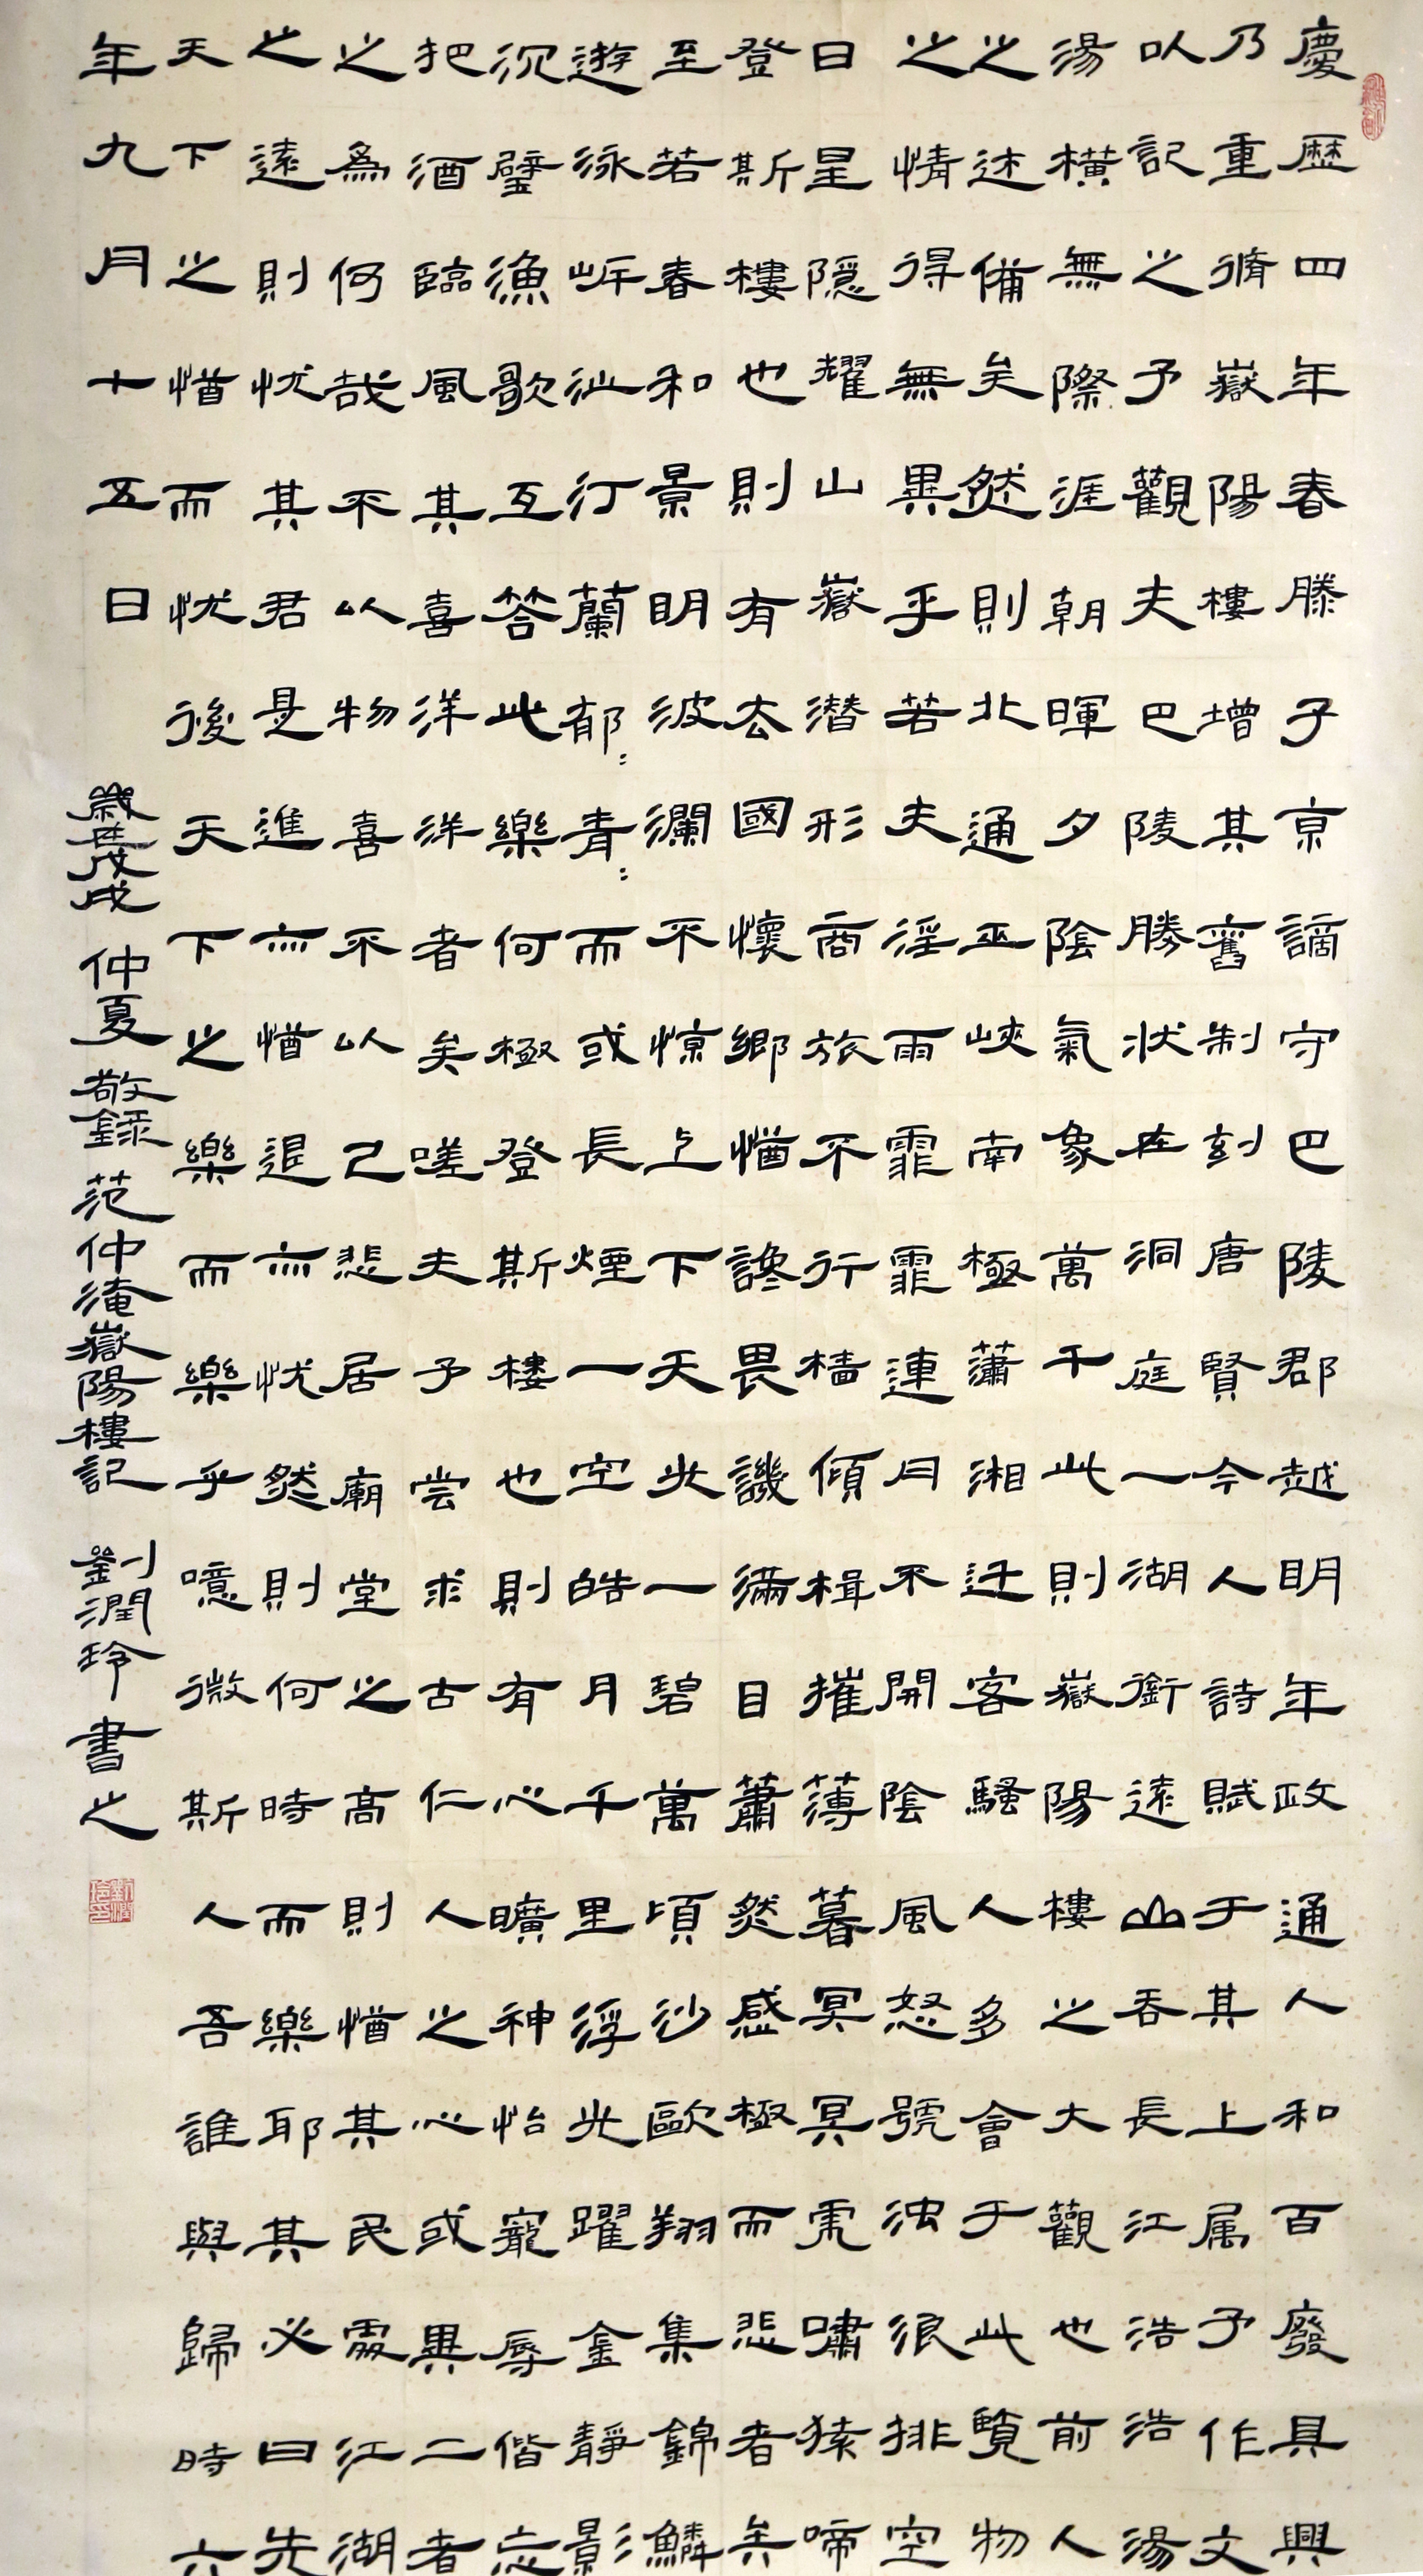 慶歷四年春滕子京謫守巴陵郡越明年政通人和百廢具興
乃重脩嶽陽樓增其舊制刻唐賢今人詩賦于其上属予作文
以記之予觀夫巴陵勝狀在洞庭一湖銜遠山吞長江浩浩湯
湯橫無際涯朝暉夕陰氣象萬千此則嶽陽樓之大觀也前人
之述備矣然則北通巫峽南極瀟湘迁客騷人多會于此覽物
之情得無異乎若夫淫雨霏霏連月不開陰風怒號浊浪排空
日星隱耀山嶽潜形商旅不行檣傾楫摧薄暮冥冥虎嘯猿啼
登斯樓也則有去國懷鄉憂讒畏譏滿目蕭然感極而悲者矣
至若春和景明波瀾不惊上下天光一碧萬頃沙鷗翔集錦鱗
遊泳岸芷汀蘭郁〻青〻而或長煙一空皓月千里浮光躍金靜影
沉璧漁歌互答此樂何極登斯樓也則有心曠神怡寵辱偕忘
把酒臨風其喜洋洋者矣嗟夫予嘗求古仁人之心或異二者
之為何哉不以物喜不以己悲居廟堂之高則憂其民處江湖
之遠則忧其君是進亦憂退亦忧然則何時而樂耶其必曰先
天下之憂而忧後天下之樂而樂乎噫微斯人吾誰與歸時六
年九月十五日
歲在戊戌 仲夏 敬錄 范仲淹嶽陽樓記 劉潤玲書之
劉潤玲印